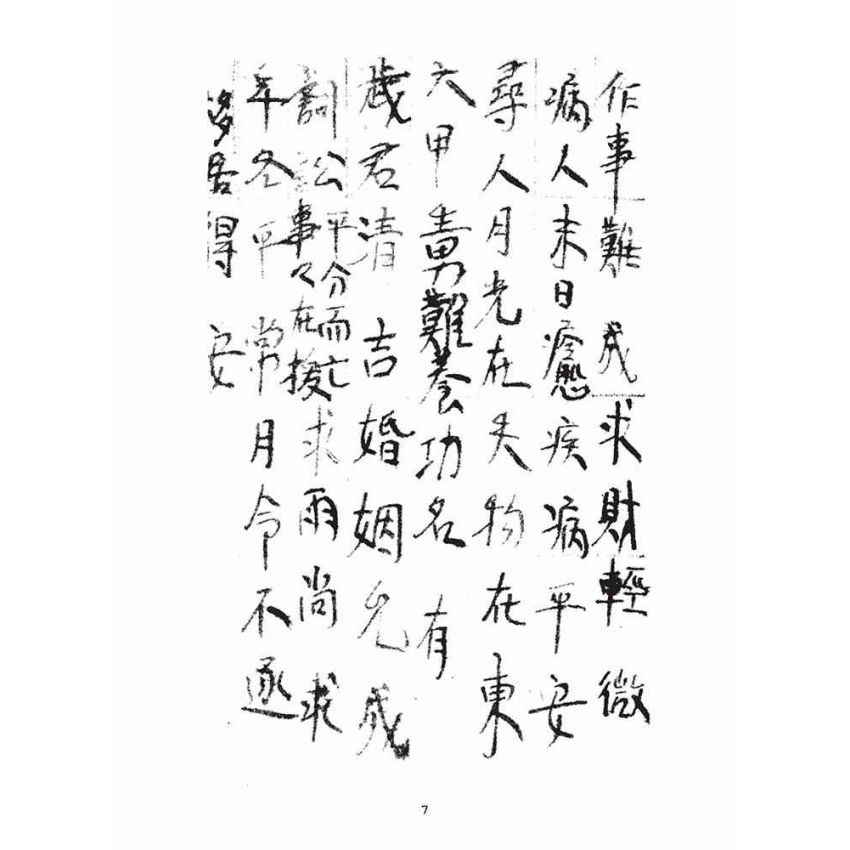 作事難成求財輕微
病人未日癒疾病平安
尋人月光在失物在東
六甲生男難養功名有
歲君清吉婚姻允成
訟平分而亡求雨尚求
事々在後
年冬平常月令不遂
移居得安
7